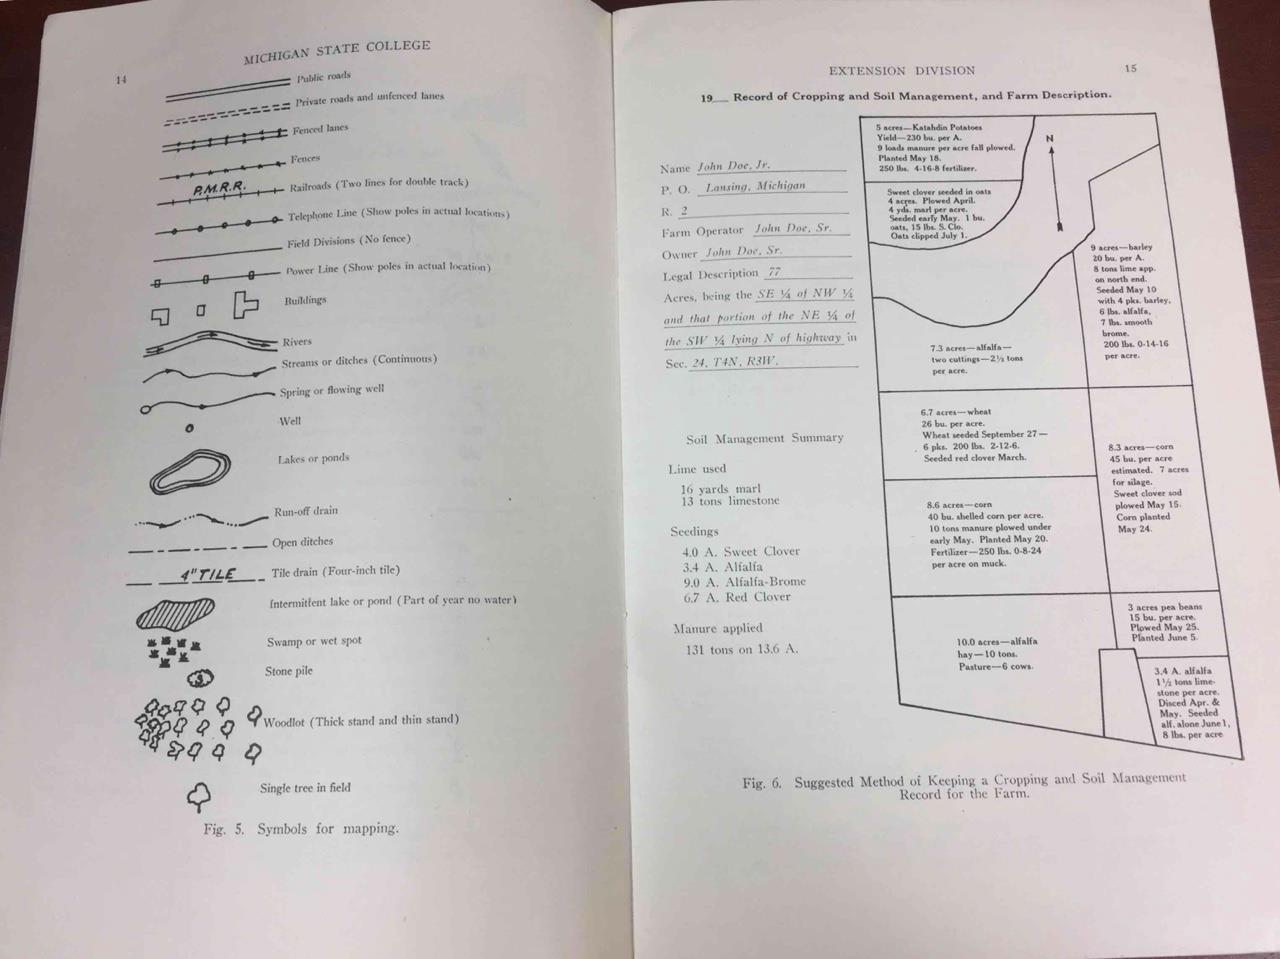 14
MICHIGAN STATE COLLEGE
Public roads
Private roads and unfenced lanes
Fenced lanes
Fences
P.M.R.R.
Railroads (Two lines for double track)
Telephone Line (Show poles in actual locations)
Field Divisions (No fence)
Power Line (Show poles in actual location)
Buildings
Rivers
Streams or ditches (Continuous)
Spring or flowing well
Well
Lakes or ponds
Run-off drain
Open ditches
4" TILE
Tile drain (Four-inch tile)
Intermittent lake or pond (Part of year no water)
Swamp or wet spot
Stone pile
Woodlot (Thick stand and thin stand)
Single tree in field
Fig. 5. Symbols for mapping.
EXTENSION DIVISION
15
19__ Record of Cropping and Soil Management, and Farm Description.
Name John Doe, Jr.
P. O. Lansing, Michigan
R. 2
Farm Operator John Doe, Sr.
Owner John Doe, Sr.
Legal Description 77
Acres, being the SE ¼ of NW ¼
and that portion of the NE ¼ of
the SW ¼ lying N of highway in
Sec. 24, T4N, R3W.
Soil Management Summary
Lime used
16 yards marl
13 tons limestone
Seedings
4.0 A. Sweet Clover
3.4 A. Alfalfa
9.0 A. Alfalfa-Brome
6.7 A. Red Clover
Manure applied
131 tons on 13.6 A.
5 acres—Katahdin Potatoes
Yield—230 bu. per A.
9 loads manure per acre fall plowed.
Planted May 18.
250 lbs. 4-16-8 fertilizer.
N
Sweet clover seeded in oats
4 acres. Plowed April.
4 yds. marl per acre.
Seeded early May. 1 bu.
oats, 15 lbs. S. Clo.
Oats clipped July 1.
9 acres—barley
20 bu. per A.
8 tons lime app.
on north end.
Seeded May 10
with 4 pks. barley,
6 lbs. alfalfa,
7 lbs. smooth
brome.
200 lbs. 0-14-16
per acre.
7.3 acres—alfalfa—
two cuttings—2½ tons
per acre.
6.7 acres—wheat
26 bu. per acre.
Wheat seeded September 27—
6 pks. 200 lbs. 2-12-6.
Seeded red clover March.
8.3 acres—corn
45 bu. per acre
estimated. 7 acres
for silage.
Sweet clover sod
plowed May 15.
Corn planted
May 24.
8.6 acres—corn
40 bu. shelled corn per acre.
10 tons manure plowed under
early May. Planted May 20.
Fertilizer—250 lbs. 0-8-24
per acre on muck.
3 acres pea beans
15 bu. per acre.
Plowed May 25.
Planted June 5.
10.0 acres—alfalfa
hay—10 tons.
Pasture—6 cows.
3.4 A. alfalfa
1½ tons lime-
stone per acre.
Disced Apr. &
May. Seeded
alf. alone June 1,
8 lbs. per acre
Fig. 6. Suggested Method of Keeping a Cropping and Soil Management
Record for the Farm.